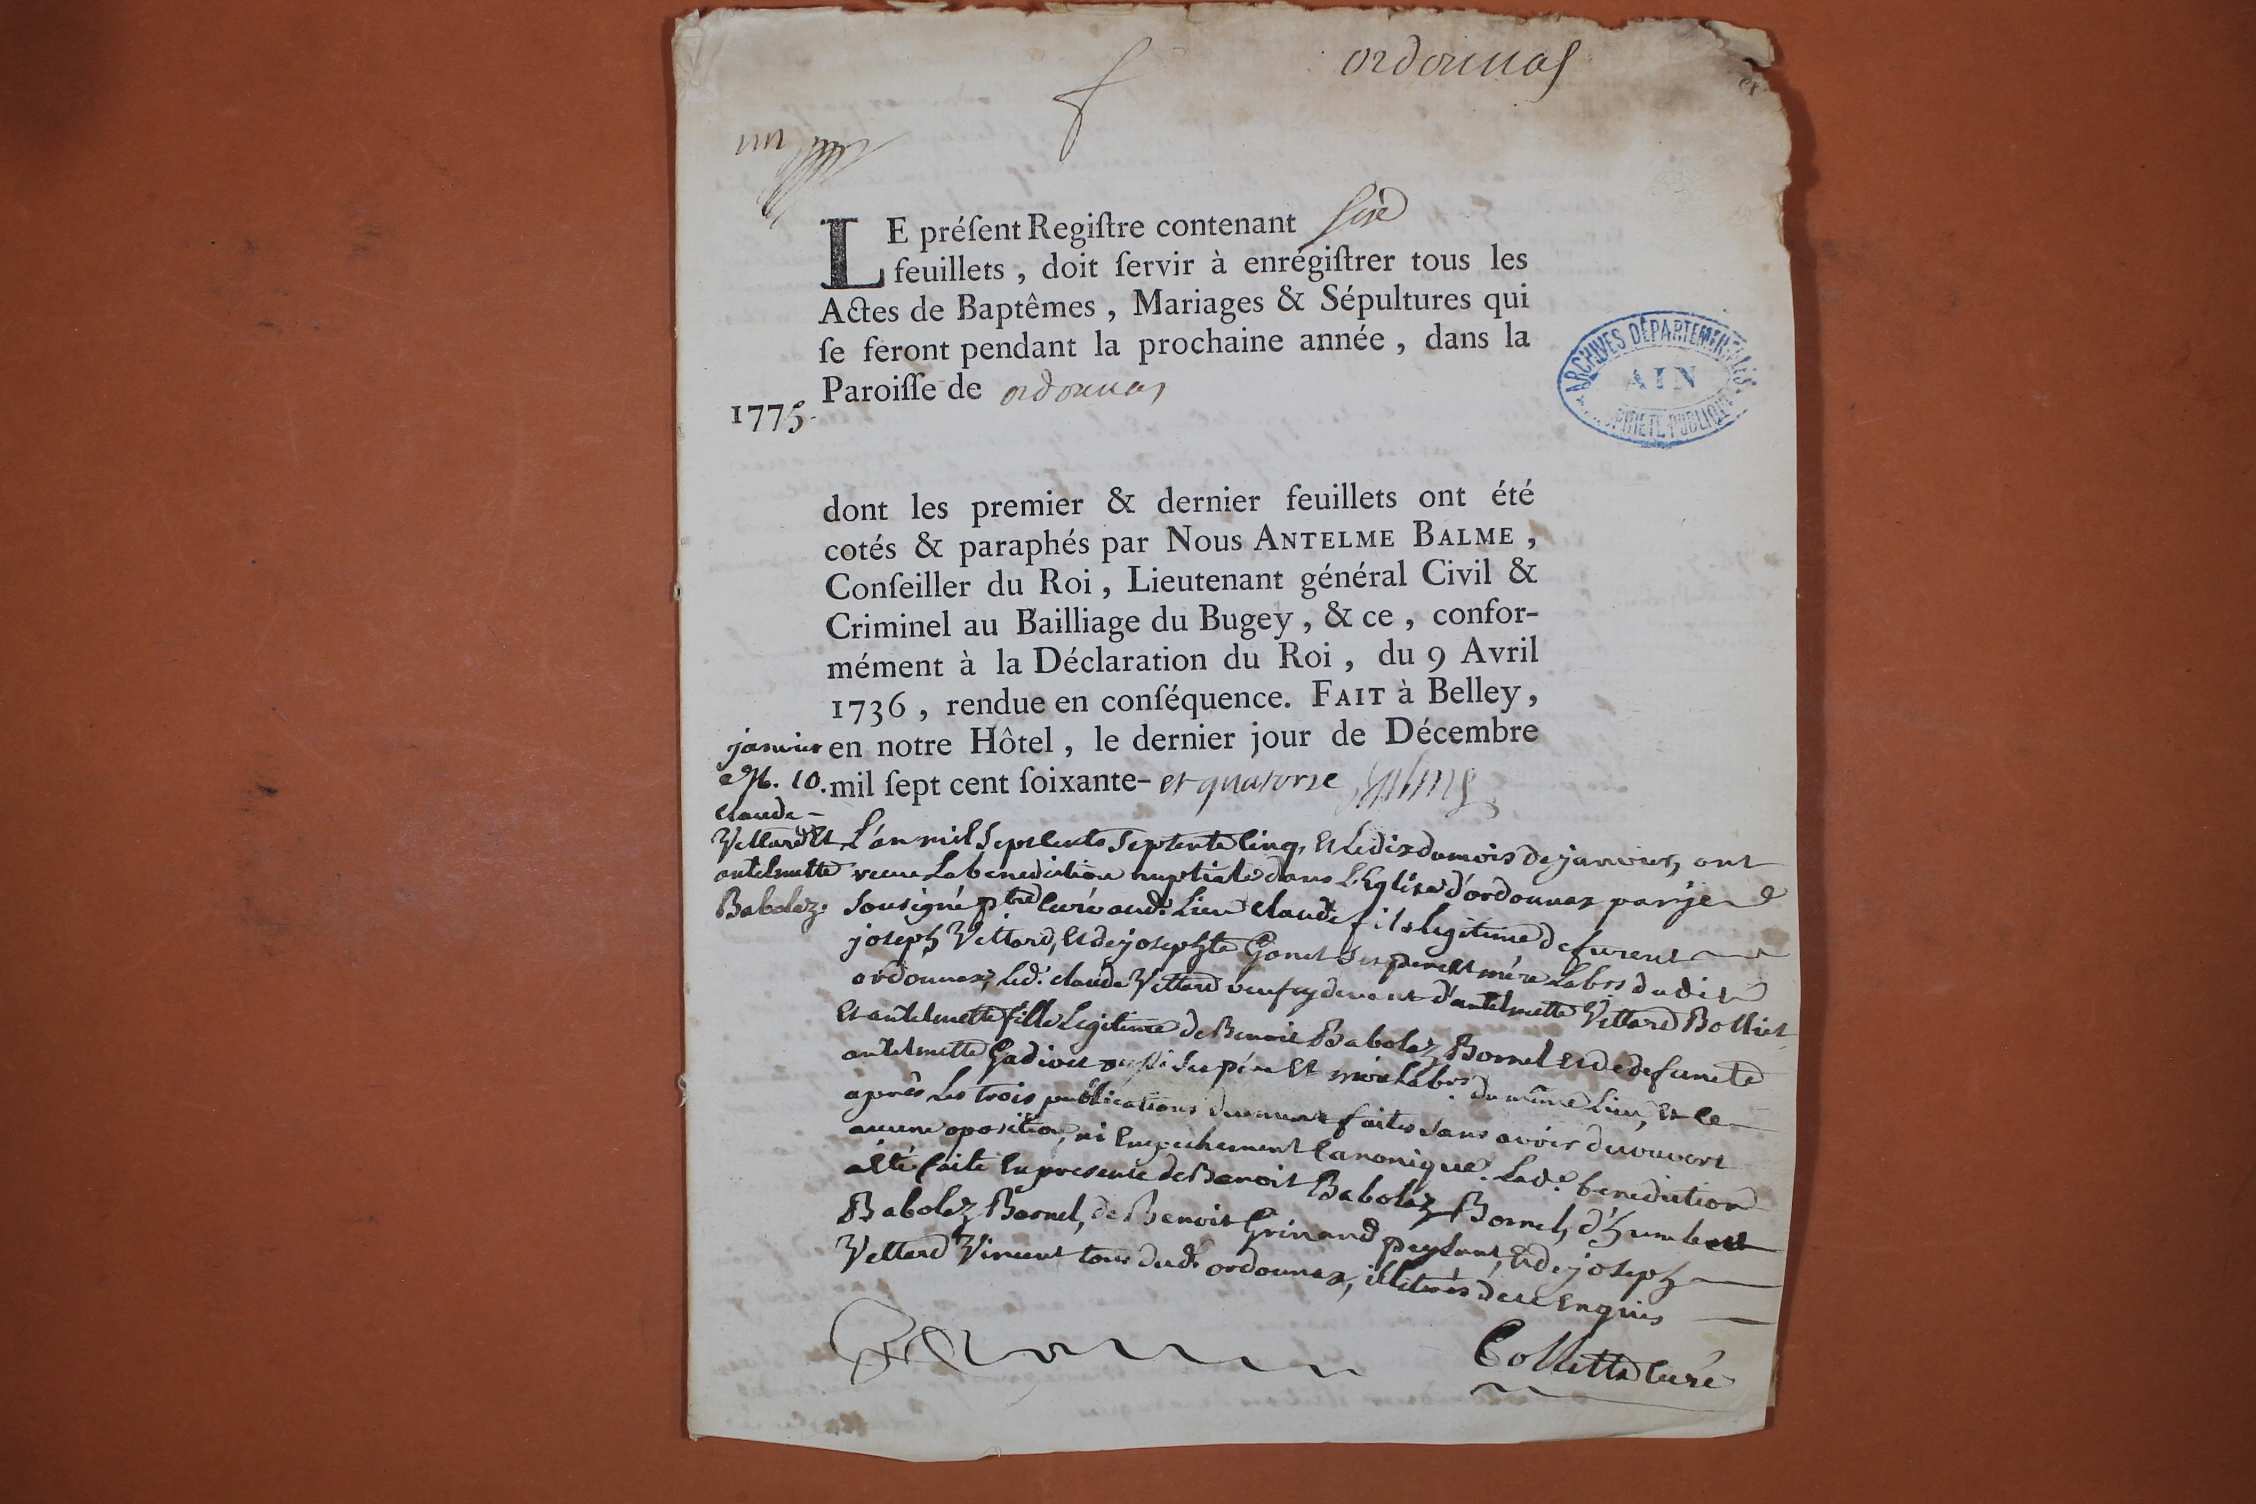 ordonnas
un
LE préſent Regiſtre contenant six
feuillets, doit ſervir à enrégiſtrer tous les
Actes de Baptêmes, Mariages & Sépultures qui
ſe feront pendant la prochaine année, dans la
Paroiſſe de ordonnas
1775.
ARCHIVES DÉPARTEMENTALES
AIN
PROPRIETE PUBLIQUE
dont les premier & dernier feuillets ont été
cotés & paraphés par Nous ANTELME BALME,
Conſeiller du Roi, Lieutenant général Civil &
Criminel au Bailliage du Bugey, & ce, confor-
mément à la Déclaration du Roi, du 9 Avril
1736, rendue en conſéquence. FAIT à Belley,
en notre Hôtel, le dernier jour de Décembre
mil ſept cent ſoixante- et quatorze Balme
janvier
10.
Claude
Vettard Et
antelmette
Babolez.
L'an mil Sept Cents Septente Cinq, Et Le dix du mois de janvier, ont
recu La benediction nuptiale dans L'Eglise d'ordonnaz par je
Sousigné ptre Curé aud. Lieu Claude fils legitime de furent
joseph Vettard, Et de josephte Gonet Ses pere Et mére Labrs dudit
ordonnaz, Led. Claude Vettard veuf cydevant d'antelmette Vettard Bolliet
Et antelmette fille Legitime de Benoit Babolez Bornel Et de defuncte
antelmette Gadiou aussi Ses pére Et mére Labrs. du même Lieu, Et Ce
aprés Les trois publications duement faites Sans avoir decouvert
aucune oposition, ni Empechement Canonique. Lad. benediction
a été faite En presence de Benoit Babolez Bornel, d'humbert
Babolez Bornel, de Benoit Grinand peysant, Et de joseph
Vettard Vincent tous dud. ordonnaz, illiterés de ce Enquis
Collette Curé